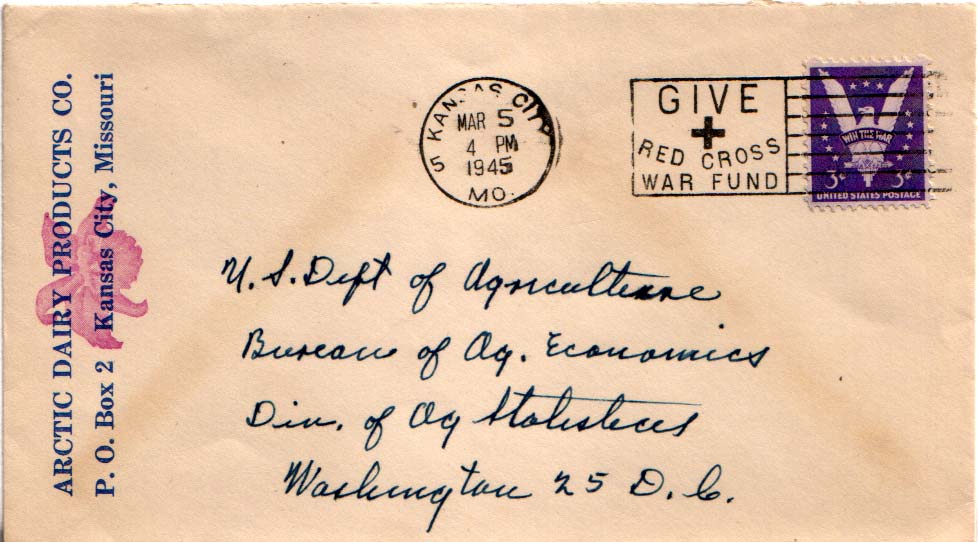 ARCTIC DAIRY PRODUCTS CO.
P. O. Box 2 Kansas City, Missouri
5 KANSAS CITY
MAR 5
4 PM
1945
MO.
GIVE
+
RED CROSS
WAR FUND
WIN THE WAR
3¢ 3¢
UNITED STATES POSTAGE
U. S. Dept of Agriculture
Bureau of Ag. Economics
Div. of Ag Statistics
Washington 25 D. C.